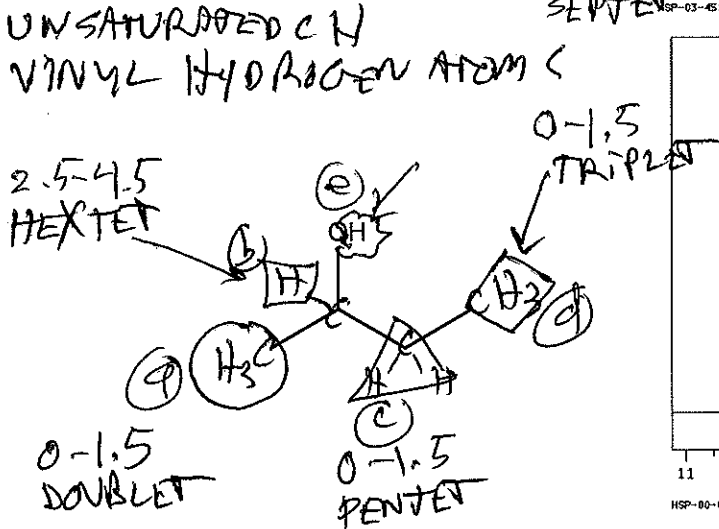 UNSATURATED CH
VINYL HYDROGEN ATOMS
SP-03-45
0-1.5
TRIPLET
2.5-4.5
HEXTET
e
OH
b
H
C
CH3
d
H3C
a
C
H H
c
0-1.5
DOUBLET
0-1.5
PENTET
11